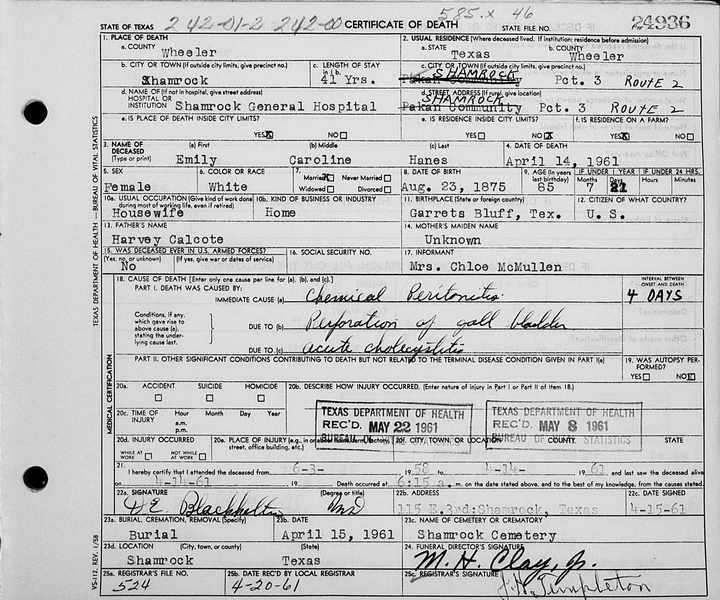 242-01-2 242-00 585.x 46
STATE OF TEXAS CERTIFICATE OF DEATH STATE FILE NO. 24936
1. PLACE OF DEATH 2. USUAL RESIDENCE (Where deceased lived. If institution: residence before admission)
a. COUNTY a. STATE b. COUNTY
Wheeler Texas Wheeler
b. CITY OR TOWN (If outside city limits, give precinct no.) c. LENGTH OF STAY in 1 b. c. CITY OR TOWN (If outside city limits, give precinct no.)
Shamrock 41 Yrs. SHAMROCK Pakan Community Pct. 3 ROUTE 2
d. NAME OF (If not in hospital, give street address) HOSPITAL OR INSTITUTION d. STREET ADDRESS (If rural, give location)
Shamrock General Hospital SHAMROCK Pakan Community Pct. 3 ROUTE 2
e. IS PLACE OF DEATH INSIDE CITY LIMITS? e. IS RESIDENCE INSIDE CITY LIMITS? f. IS RESIDENCE ON A FARM?
YES X NO YES NO X YES X NO
3. NAME OF DECEASED (Type or print) (a) First (b) Middle (c) Last 4. DATE OF DEATH
Emily Caroline Hanes April 14, 1961
5. SEX 6. COLOR OR RACE 7. Married X Never Married Widowed Divorced 8. DATE OF BIRTH 9. AGE (In years last birthday) IF UNDER 1 YEAR IF UNDER 24 HRS.
Months Days Hours Minutes
Female White Aug. 23, 1875 85 7
10a. USUAL OCCUPATION (Give kind of work done during most of working life, even if retired) 10b. KIND OF BUSINESS OR INDUSTRY 11. BIRTHPLACE (State or foreign country) 12. CITIZEN OF WHAT COUNTRY?
Housewife Home Garrets Bluff, Tex. U. S.
13. FATHER'S NAME 14. MOTHER'S MAIDEN NAME
Harvey Calcote Unknown
15. WAS DECEASED EVER IN U.S. ARMED FORCES? 16. SOCIAL SECURITY NO. 17. INFORMANT
(Yes, no, or unknown) (If yes, give war or dates of service)
No Mrs. Chloe McMullen
18. CAUSE OF DEATH [Enter only one cause per line for (a), (b), and (c).] INTERVAL BETWEEN ONSET AND DEATH
PART I. DEATH WAS CAUSED BY:
IMMEDIATE CAUSE (a) Chemical Peritonitis 4 DAYS
Conditions, if any, which gave rise to above cause (a), stating the underlying cause last.
DUE TO (b) Perforation of gall bladder
DUE TO (c) acute cholecystitis
PART II. OTHER SIGNIFICANT CONDITIONS CONTRIBUTING TO DEATH BUT NOT RELATED TO THE TERMINAL DISEASE CONDITION GIVEN IN PART I(a) 19. WAS AUTOPSY PERFORMED?
YES NO X
20a. ACCIDENT SUICIDE HOMICIDE 20b. DESCRIBE HOW INJURY OCCURRED. (Enter nature of injury in Part I or Part II of item 18.)
20c. TIME OF INJURY Hour Month Day Year
a.m.
p.m.
TEXAS DEPARTMENT OF HEALTH TEXAS DEPARTMENT OF HEALTH
REC'D. MAY 22 1961 REC'D. MAY 8 1961
BUREAU OF BUREAU OF STATISTICS
20d. INJURY OCCURRED 20e. PLACE OF INJURY (e.g., in or about home, farm, factory, street, office building, etc.) 20f. CITY, TOWN, OR LOCATION COUNTY STATE
WHILE AT WORK NOT WHILE AT WORK
21. I hereby certify that I attended the deceased from 6-3- 1958 to 4-14- 1961, and last saw the deceased alive
on 4-14-61 19 Death occurred at 6:15 a. m. on the date stated above, and to the best of my knowledge, from the causes stated.
22a. SIGNATURE (Degree or title) 22b. ADDRESS 22c. DATE SIGNED
115 E.3rd:Shamrock, Texas 4-15-61
23a. BURIAL, CREMATION, REMOVAL (Specify) 23b. DATE 23c. NAME OF CEMETERY OR CREMATORY
Burial April 15, 1961 Shamrock Cemetery
23d. LOCATION (City, town, or county) (State) 24. FUNERAL DIRECTOR'S SIGNATURE
Shamrock Texas M. H. Clay, Jr.
25a. REGISTRAR'S FILE NO. 25b. DATE REC'D BY LOCAL REGISTRAR 25c. REGISTRAR'S SIGNATURE
524 4-20-61 Templeton
TEXAS DEPARTMENT OF HEALTH — BUREAU OF VITAL STATISTICS
MEDICAL CERTIFICATION
VS-112, REV. 1/58